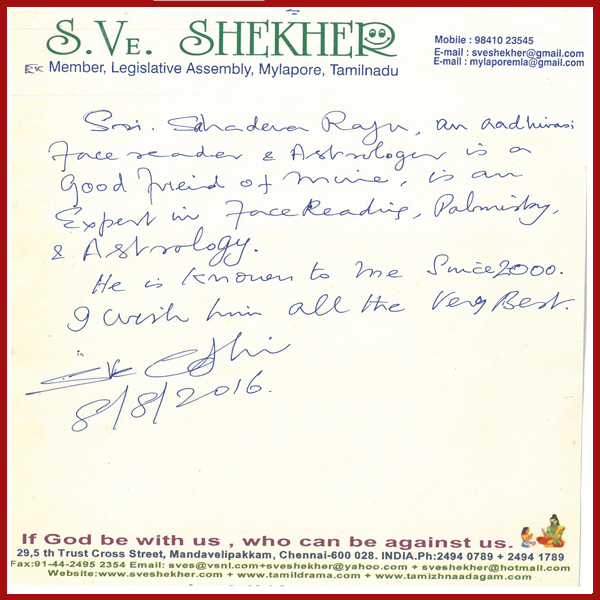 S.VE. SHEKHER
Mobile : 98410 23545
E-mail : sveshekher@gmail.com
E-mail : mylaporemla@gmail.com
Ex Member, Legislative Assembly, Mylapore, Tamilnadu
Sri. Sahadeva Raju, an aadhivasi
Face reader & Astrologer is a
Good freind of mine, is an
Expert in Face Reading, Palmistry,
& Astrology.
He is known to me Since 2000.
I wish him all the Very Best.
8/8/2016.
If God be with us , who can be against us.
29,5 th Trust Cross Street, Mandavelipakkam, Chennai-600 028. INDIA.Ph:2494 0789 + 2494 1789
Fax:91-44-2495 2354 Email: sves@vsnl.com+sveshekher@yahoo.com + sveshekher@hotmail.com
Website:www.sveshekher.com + www.tamildrama.com + www.tamizhnaadagam.com